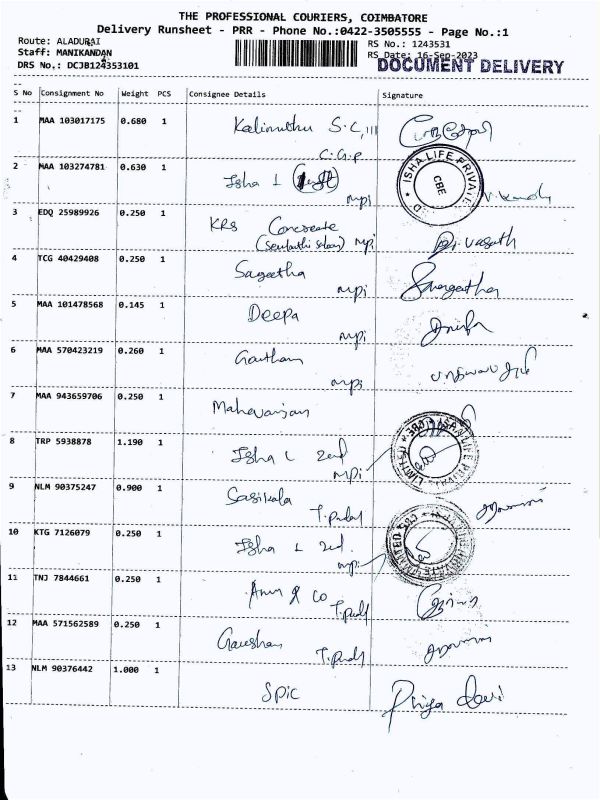 THE PROFESSIONAL COURIERS, COIMBATORE
Delivery Runsheet - PRR - Phone No.:0422-3505555 - Page No.:1
Route: ALADURAI
Staff: MANIKANDAN
DRS No.: DCJB124353101
RS No.: 1243531
RS Date: 16-Sep-2023
DOCUMENT DELIVERY
S No Consignment No Weight PCS Consignee Details Signature
1 MAA 103017175 0.680 1 Kalimuthu S.C, III
C.G.P
2 MAA 103274781 0.630 1 Isha L
mpi
ISHA LIFE PRIVATE
CBE
3 EDQ 25989926 0.250 1 KRS Concreate
mpi
4 TCG 40429408 0.250 1 Sageetha
mpi Sangeetha
5 MAA 101478568 0.145 1 Deepa
mpi
6 MAA 570423219 0.260 1 Gautham
mpi
7 MAA 943659706 0.250 1
8 TRP 5938878 1.190 1 Isha L
mpi
9 NLM 90375247 0.900 1 Sasikala
10 KTG 7126079 0.250 1 Isha L
mpi
11 TNJ 7844661 0.250 1 & Co
12 MAA 571562589 0.250 1
13 NLM 90376442 1.000 1 SPIC Priya Devi